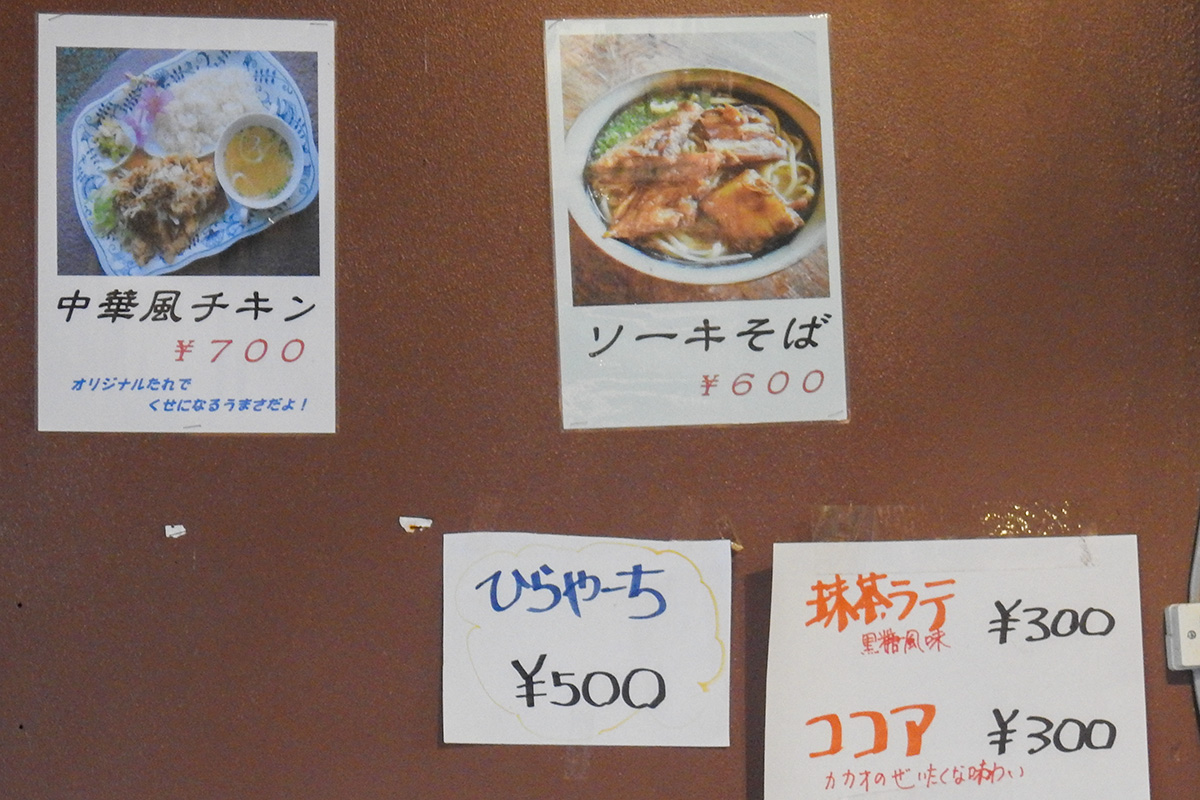 中華風チキン
¥700
オリジナルたれで
くせになるうまさだよ！
ソーキそば
¥600
ひらやーち
¥500
抹茶ラテ ¥300
黒糖風味
ココア ¥300
カカオのぜいたくな味わい